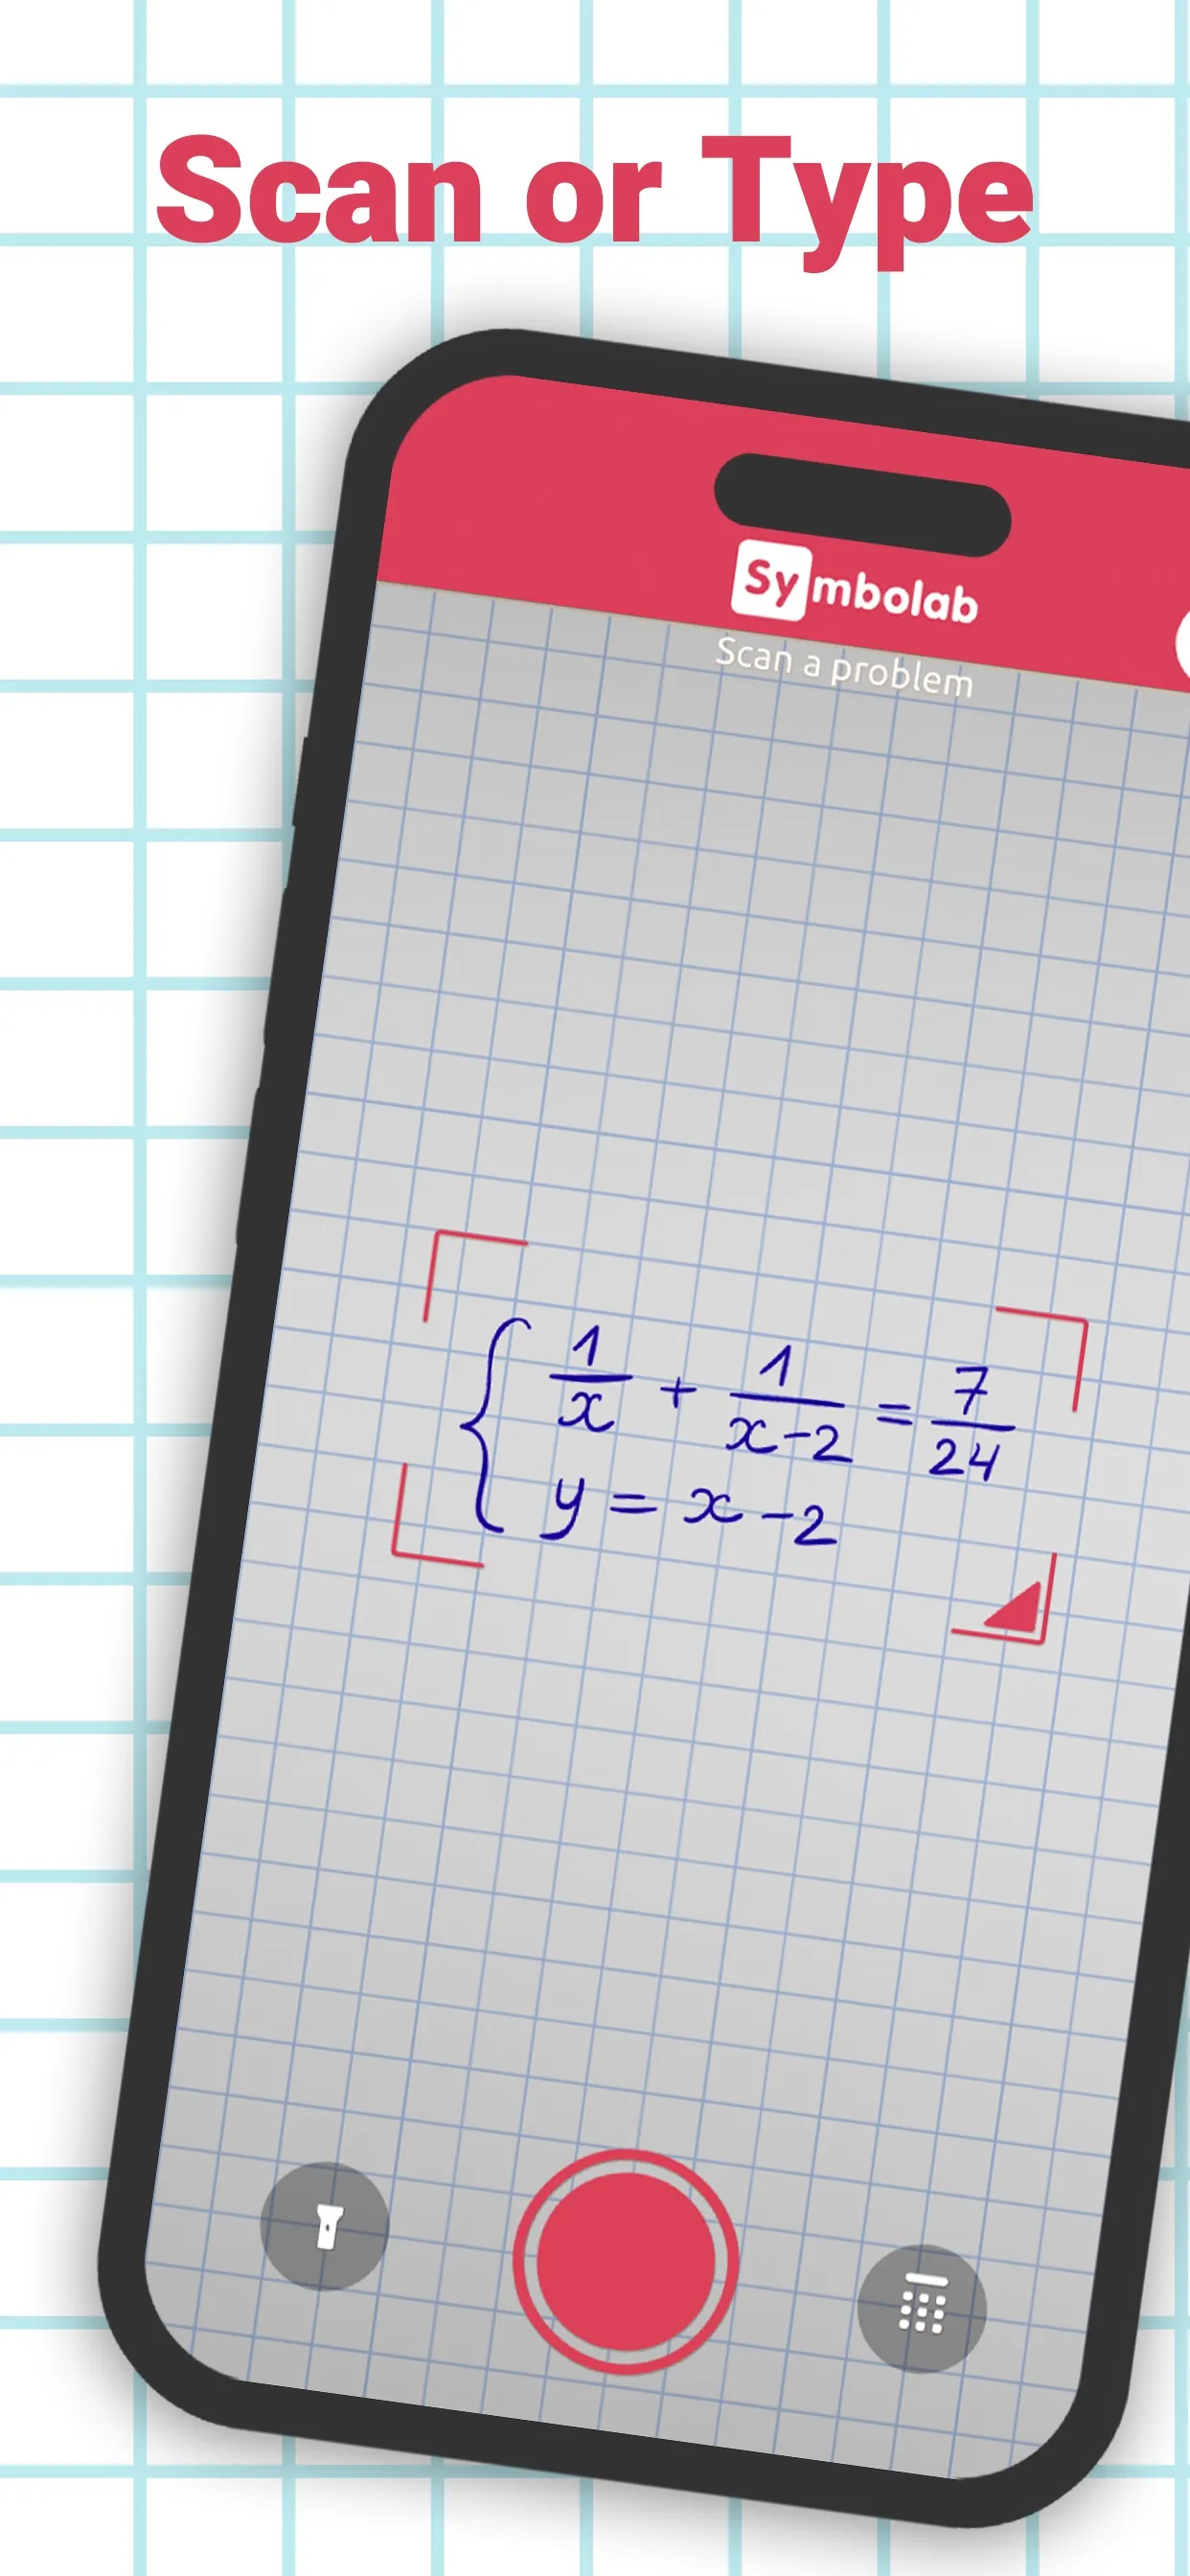 Scan or Type
Symbolab
Scan a problem
1/x + 1/x-2 = 7/24
y = x-2